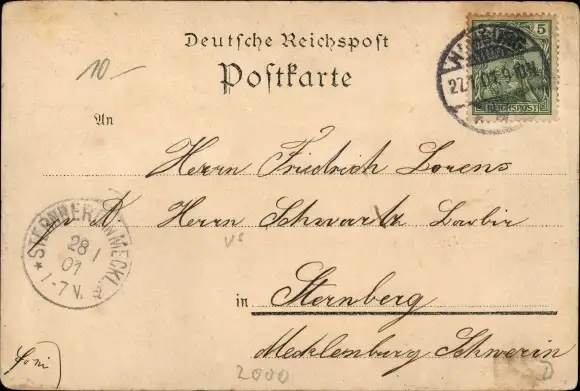 Deutsche Reichspost
Postkarte
5
REICHSPOST
27. 1. 01 9-10N
10-
An
Herrn Friedrich Lorens
Herrn Schwartz
in Sternberg
Mecklenburg Schwerin
STERNBERG IN MECKL.
28/1
01
1-7 V.
2000
D